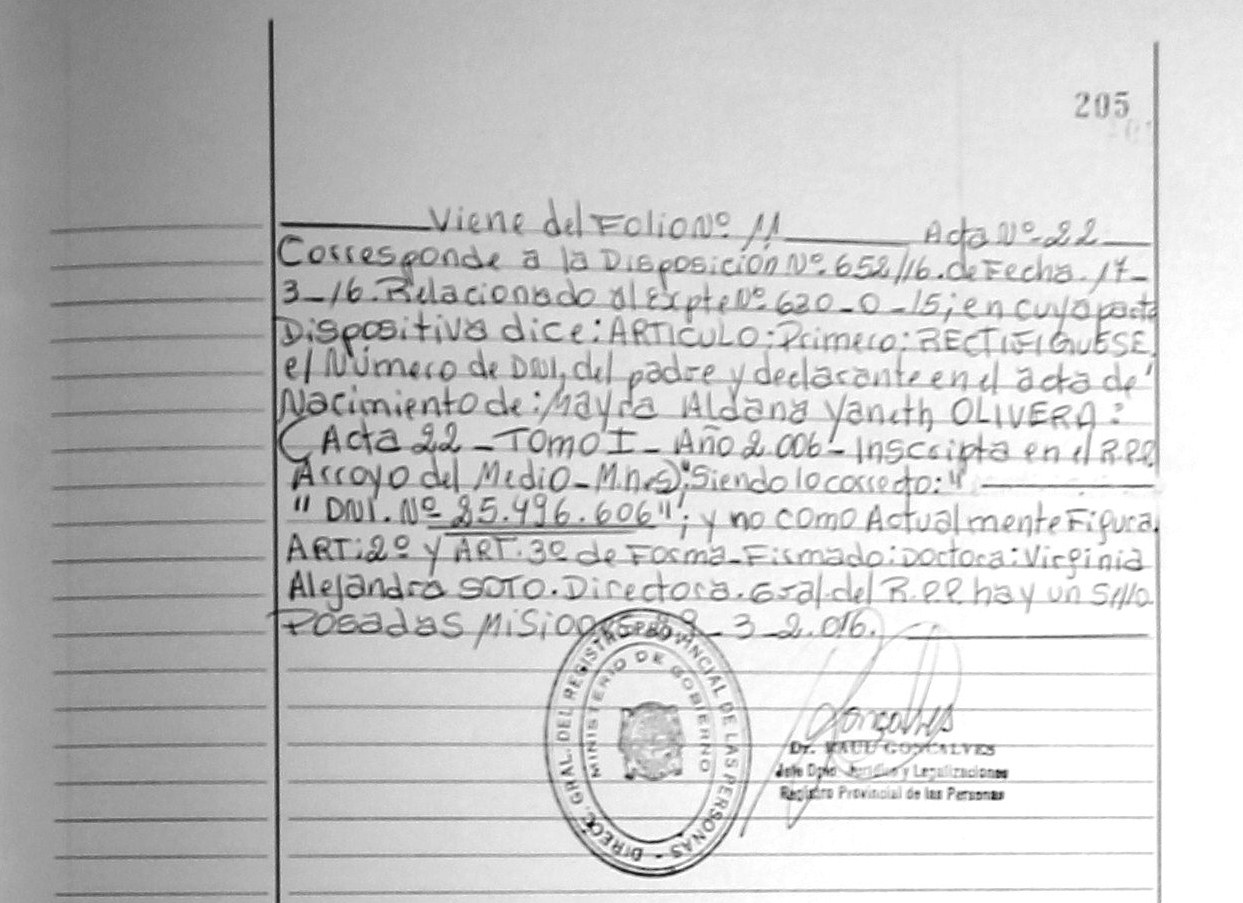 205
Viene del Folio Nº 11 Acta Nº 22
Corresponde a la Disposición Nº 652/16. de Fecha. 17-
3-16. Relacionado al Expte Nº 620-0-15; en cuya parte
Dispositiva dice: ARTICULO: Primero: RECTIFIQUESE,
el Número de DNI, del padre y declarante en el acta de
Nacimiento de: Mayra Aldana Yaneth OLIVERA:
(Acta 22 - TOMO I - Año 2.006 - Inscripta en el R.P.P.
Arroyo del Medio - Mnes); "Siendo lo correcto:"
"DNI. Nº 25.496.606"; y no como Actualmente Figura.
ART: 2º y ART. 3º de Forma - Firmado: Doctora: Virginia
Alejandra SOTO. Directora. Gral. del R.P.P. hay un Sello
Posadas Misiones - 3 - 2.016.
DIREC. GRAL. DEL REGISTRO PROVINCIAL DE LAS PERSONAS
MINISTERIO DE GOBIERNO
Gonçalves
Dr. RAUL GONCALVES
Jefe Dpto. Jurídico y Legalizaciones
Registro Provincial de las Personas